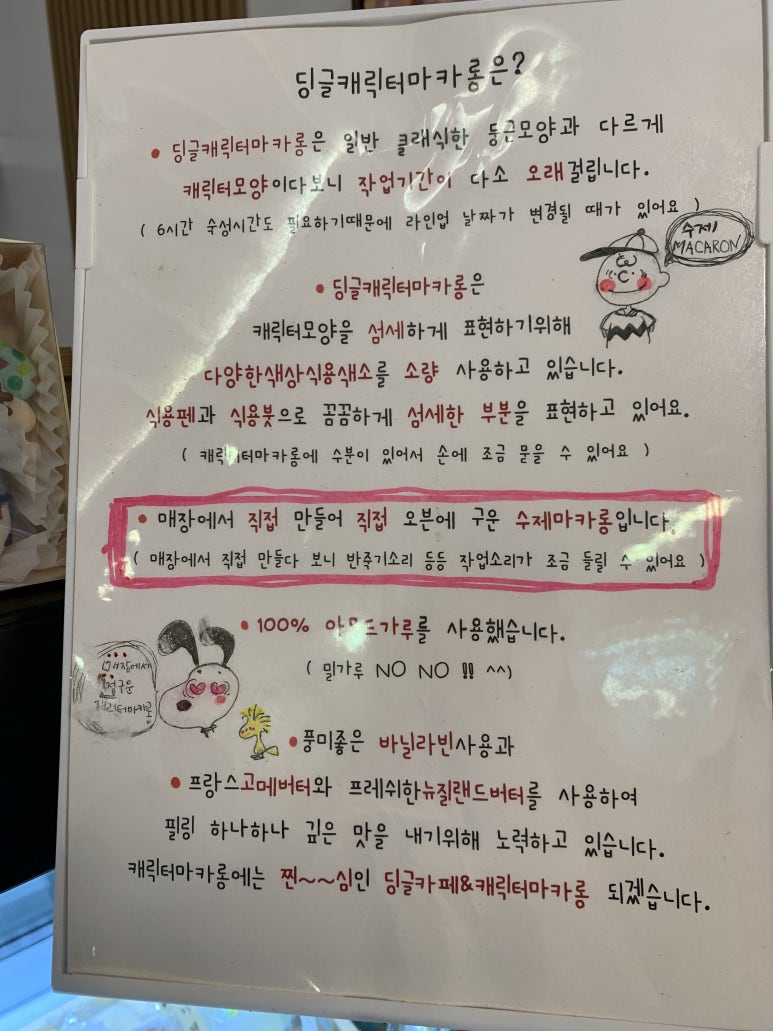 딩글캐릭터마카롱은?
• 딩글캐릭터마카롱은 일반 클래식한 둥근모양과 다르게
캐릭터모양이다보니 작업기간이 다소 오래걸립니다.
( 6시간 숙성시간도 필요하기때문에 라인업 날짜가 변경될 때가 있어요 )
수제
MACARON
• 딩글캐릭터마카롱은
캐릭터모양을 섬세하게 표현하기위해
다양한색상식용색소를 소량 사용하고 있습니다.
식용펜과 식용붓으로 꼼꼼하게 섬세한 부분을 표현하고 있어요.
( 캐릭터마카롱에 수분이 있어서 손에 조금 묻을 수 있어요 )
• 매장에서 직접 만들어 직접 오븐에 구운 수제마카롱입니다.
( 매장에서 직접 만들다 보니 반죽기소리 등등 작업소리가 조금 들릴 수 있어요 )
• 100% 아몬드가루를 사용했습니다.
( 밀가루 NO NO !! ^^)
매장에서
구운
캐릭터마카롱
• 풍미좋은 바닐라빈사용과
• 프랑스고메버터와 프레쉬한뉴질랜드버터를 사용하여
필링 하나하나 깊은 맛을 내기위해 노력하고 있습니다.
캐릭터마카롱에는 찐~~심인 딩글카페&캐릭터마카롱 되겠습니다.